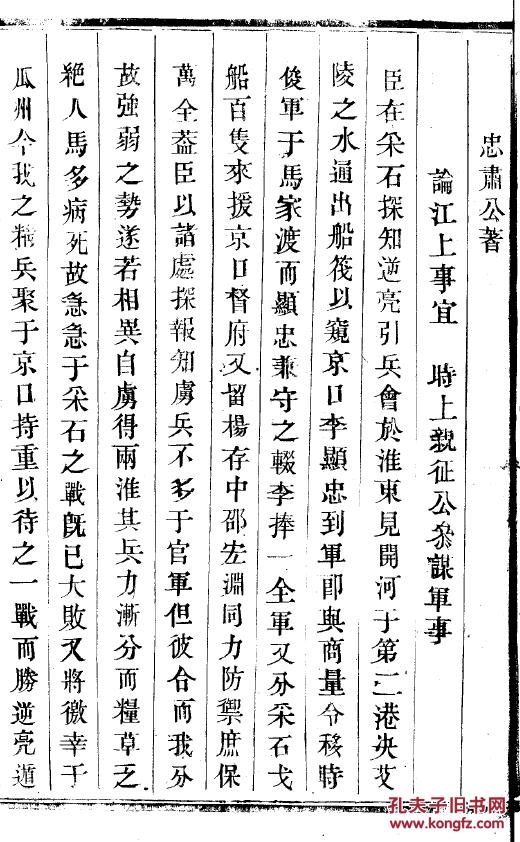 忠肅公著
論江上事宜 時上親征公叅謀軍事
臣在采石探知逆亮引兵會於淮東見開河于第二港決艾
陵之水通出船筏以窺京口李顯忠到軍即與商量令移時
俊軍于馬家渡而顯忠兼守之輟李捧一全軍又分采石戈
船百隻來援京口督府又留楊存中邵宏淵同力防禦庶保
萬全葢臣以諸處探報知虜兵不多于官軍但彼合而我分
故強弱之勢遂若相異自虜得兩淮其兵力漸分而糧草乏
絕人馬多病死故急急于采石之戰旣已大敗又將徼幸于
瓜州今我之精兵聚于京口持重以待之一戰而勝逆亮遁
孔夫子旧书网
www.kongfz.com